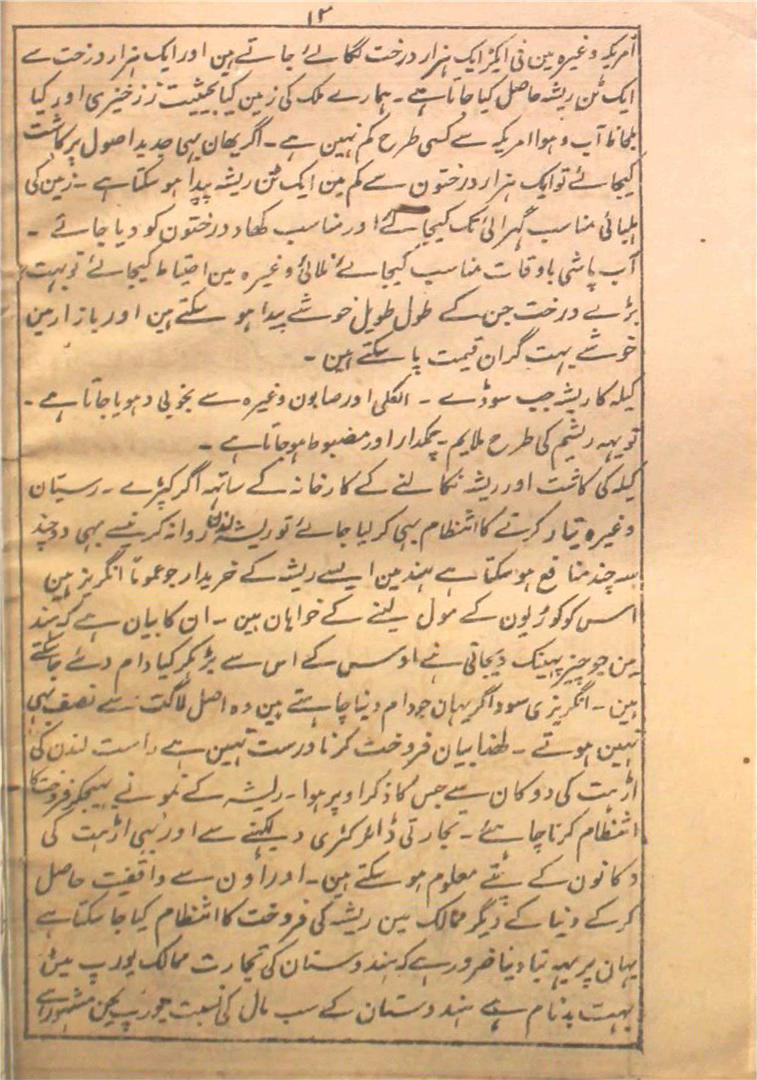 ۱۲
امریکہ وغیرہ مین فی ایکڑ ایک ہزار درخت لگائے جاتے ہین اور ایک ہزار درخت سے
ایک ٹن ریشہ حاصل کیا جاتا ہے ۔ ہمارے ملک کی زمین کیا بحیثیت زرخیزی اور کیا
بلحاظ آب و ہوا امریکہ سے کسی طرح کم نہین ہے ۔ اگر یہان بہی جدید اصول پر کاشت
کیجائے تو ایک ہزار درختون سے کم مین ایک ٹن ریشہ پیدا ہو سکتا ہے ۔ زمین کی
ہلیائی مناسب گہرائی تک کیجائے اور مناسب کھاد درختون کو دیا جائے ۔
آب پاشی باوقات مناسب کیجائے نلائی وغیرہ مین احتیاط کیجائے تو بہت
بڑے درخت جن کے طول طویل خوشے پیدا ہو سکتے ہین اور بازار مین
خوشے بہت گران قیمت پا سکتے ہین ۔
کیلہ کا ریشہ جب سوڈے ۔ الکلی اور صابون وغیرہ سے بخوبی دہویا جاتا ہے ۔
تو یہہ ریشم کی طرح ملایم ۔ چمکدار اور مضبوط ہو جاتا ہے ۔
کیلہ کی کاشت اور ریشہ نکالنے کے کارخانہ کے ساتہہ اگر کپڑے ۔ رسیان
وغیرہ تیار کرنے کا انتظام بہی کر لیا جائے تو ریشہ لندن روانہ کرنیسے بہی دو چند
سہ چند منافع ہو سکتا ہے ہند مین ایسے ریشہ کے خریدار جو عموماً انگریز ہین
اس کو کوڑیون کے مول لینے کے خواہان ہین ۔ ان کا بیان ہے کہ ہند
مین جو چیز پہینک دیجاتی ہے اوس کے اس سے بڑہکر کیا دام دئے جا سکتے
ہین ۔ انگریزی سوداگر یہان جو دام دینا چاہتے ہین وہ اصل لاگت سے نصف بہی
نہین ہوتے ۔ لھذا یہان فروخت کرنا درست نہین ہے راست لندن کی
اڑہت کی دوکان سے جس کا ذکر اوپر ہوا ۔ ریشہ کے نمونے بہیجکر فروخت کا
انتظام کرنا چاہئے ۔ تجارتی ڈائرکٹری دیکہنے سے اور بہی اڑہت کی
دکانون کے پتے معلوم ہو سکتے ہین ۔ اور اون سے واقفیت حاصل
کر کے دنیا کے دیگر ممالک مین ریشہ کی فروخت کا انتظام کیا جا سکتا ہے
یہان پر یہہ بتا دینا ضرور ہے کہ ہندوستان کی تجارت ممالک یورپ مین
بہت بدنام ہے ہندوستان کے سب مال کی نسبت یورپ مین مشہور ہے